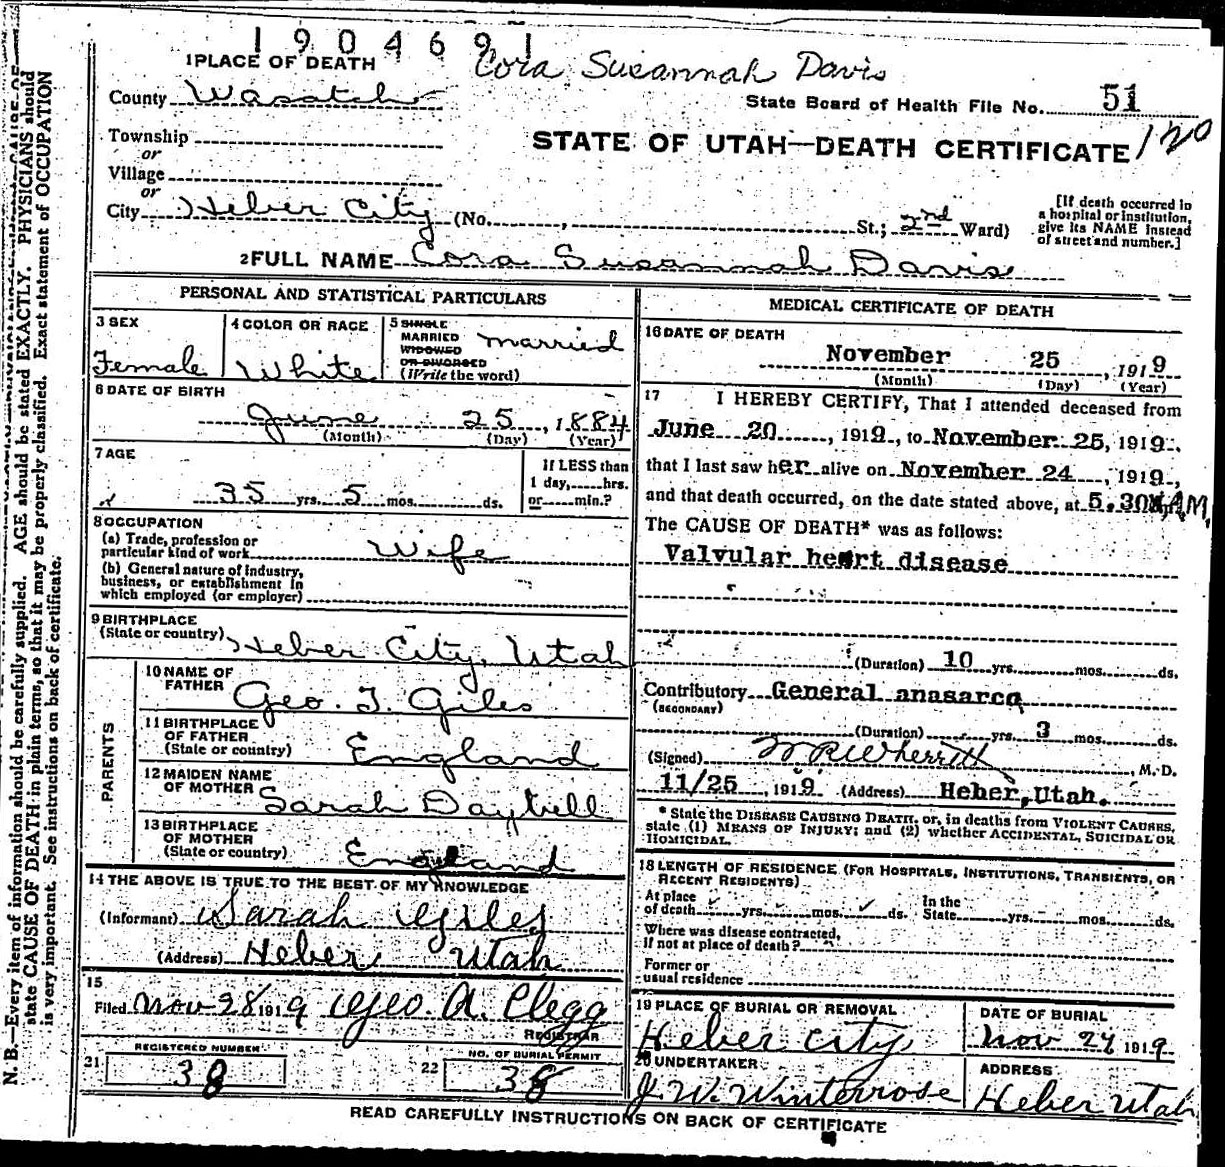 1904691
1 PLACE OF DEATH
Cora Susannah Davis
County Wasatch
State Board of Health File No. 51
Township
or
Village
or
STATE OF UTAH—DEATH CERTIFICATE 120
City Heber City (No. , St.; 2nd Ward)
[If death occurred in
a hospital or institution,
give its NAME instead
of street and number.]
2 FULL NAME Cora Susannah Davis
PERSONAL AND STATISTICAL PARTICULARS
3 SEX
Female
4 COLOR OR RACE
White
5 SINGLE
MARRIED
WIDOWED
OR DIVORCED
(Write the word)
married
6 DATE OF BIRTH
June 25, 1884
(Month) (Day) (Year)
7 AGE
35 yrs. 5 mos. ds.
If LESS than
1 day, hrs.
or min.?
8 OCCUPATION
(a) Trade, profession or
particular kind of work Wife
(b) General nature of industry,
business, or establishment in
which employed (or employer)
9 BIRTHPLACE
(State or country) Heber City, Utah
PARENTS
10 NAME OF
FATHER Geo. T. Giles
11 BIRTHPLACE
OF FATHER
(State or country) England
12 MAIDEN NAME
OF MOTHER Sarah Daybell
13 BIRTHPLACE
OF MOTHER
(State or country) England
14 THE ABOVE IS TRUE TO THE BEST OF MY KNOWLEDGE
(Informant) Sarah Giles
(Address) Heber Utah
15
Filed Nov 28 1919 Geo. A. Clegg
REGISTRAR
21 REGISTERED NUMBER
38
22 NO. OF BURIAL PERMIT
38
MEDICAL CERTIFICATE OF DEATH
16 DATE OF DEATH
November 25, 1919
(Month) (Day) (Year)
17 I HEREBY CERTIFY, That I attended deceased from
June 20, 1919, to November 25, 1919,
that I last saw her alive on November 24, 1919,
and that death occurred, on the date stated above, at 5.30 A.M.
The CAUSE OF DEATH* was as follows:
Valvular heart disease
(Duration) 10 yrs. mos. ds.
Contributory General anasarca
(SECONDARY)
(Duration) yrs. 3 mos. ds.
(Signed) W R Wherritt, M. D.
11/25, 1919 (Address) Heber, Utah.
* State the DISEASE CAUSING DEATH, or, in deaths from VIOLENT CAUSES,
state (1) MEANS OF INJURY; and (2) whether ACCIDENTAL, SUICIDAL OR
HOMICIDAL.
18 LENGTH OF RESIDENCE (FOR HOSPITALS, INSTITUTIONS, TRANSIENTS, OR
RECENT RESIDENTS)
At place
of death yrs. mos. ds.
In the
State yrs. mos. ds.
Where was disease contracted,
if not at place of death?
Former or
usual residence
19 PLACE OF BURIAL OR REMOVAL
Heber City
DATE OF BURIAL
Nov 27 1919
20 UNDERTAKER
J. W. Winterrose
ADDRESS
Heber Utah
READ CAREFULLY INSTRUCTIONS ON BACK OF CERTIFICATE
N. B.—Every item of information should be carefully supplied. AGE should be stated EXACTLY. PHYSICIANS should
state CAUSE OF DEATH in plain terms, so that it may be properly classified. Exact statement of OCCUPATION
is very important. See instructions on back of certificate.